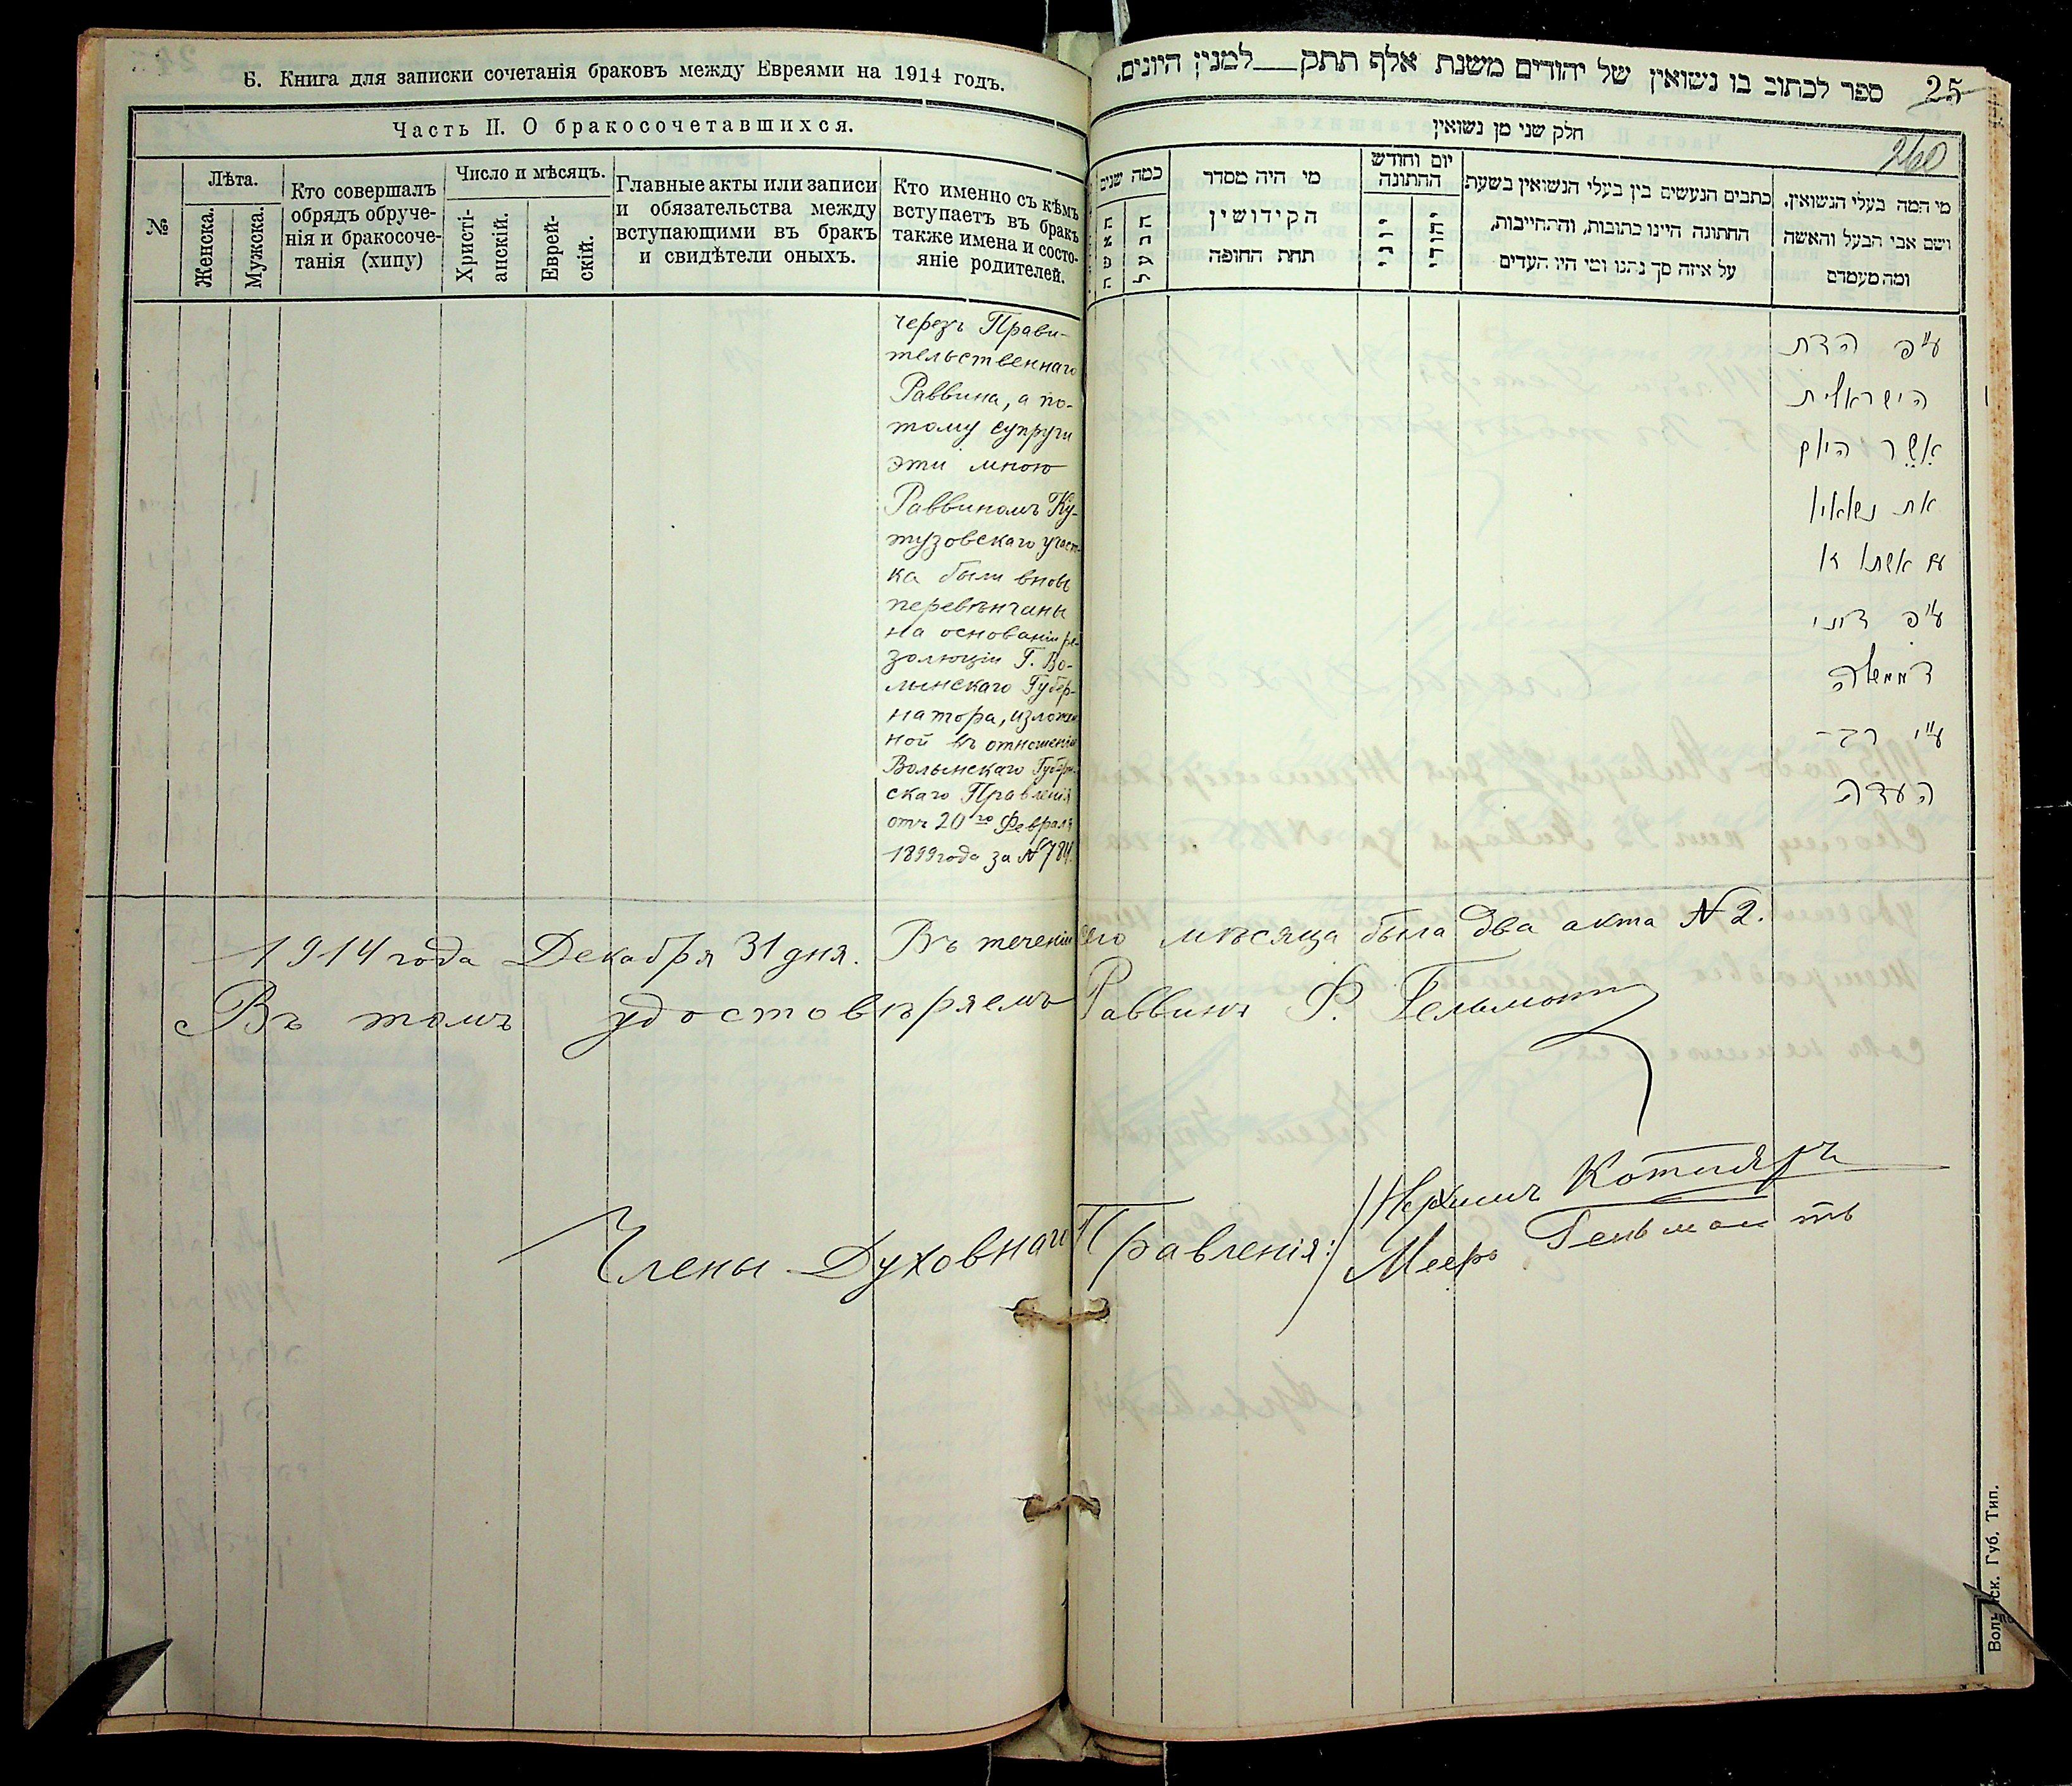 Б. Книга для записки сочетанія браковъ между Евреями на 1914 годъ.
Часть II. О бракосочетавшихся.
№
Лѣта.
Женска.
Мужска.
Кто совершалъ
обрядъ обруче-
нія и бракосоче-
танія (хипу)
Число и мѣсяцъ.
Христі-
анскій.
Еврей-
скій.
Главные акты или записи
и обязательства между
вступающими въ бракъ
и свидѣтели оныхъ.
Кто именно съ кѣмъ
вступаетъ въ бракъ
также имена и состо-
яніе родителей.
черезъ Прави-
тельственнаго
Раввина, а по-
тому супруги
эти мною
Раввиномъ Ку-
тузовскаго участ-
ка были вновь
перевѣнчаны
на основаніи ре-
золюціи Г. Во-
лынскаго Губер-
натора, изложен
ной въ отношеніи
Волынскаго Губерн-
скаго Правленія
отъ 20го Февраля
1899 года за № 784.
ספר לכתוב בו נשואין של יהודים משנת אלף תתק___למנין היונים.
25
260
חלק שני מן נשואין
כמה שנים
האשה
הבעל
מי היה מסדר
הקידושין
תחת החופה
יום וחודש
החתונה
כתבים הנעשים בין בעלי הנשואין בשעת
החתונה היינו כתובות, והתחייבות,
על איזה סך נתנו ומי היו העדים
מי המה בעלי הנשואין,
ושם אבי הבעל והאשה
ומה מעמדם
ע״פ הדת
הישראלית
אשר הוקם
את נשואיו
עם אשתו זו
ע״פ דיני
דממשלה
ע״י רב-
העדה
1914 года Декабря 31 дня. Въ теченіи сего мѣсяца была два акта № 2.
Въ томъ удостовѣряемъ Раввинъ Ф. Гельманъ
Члены Духовнаго Правленія: Котляръ
Мееръ Гельманъ
Волынск. Губ. Тип.